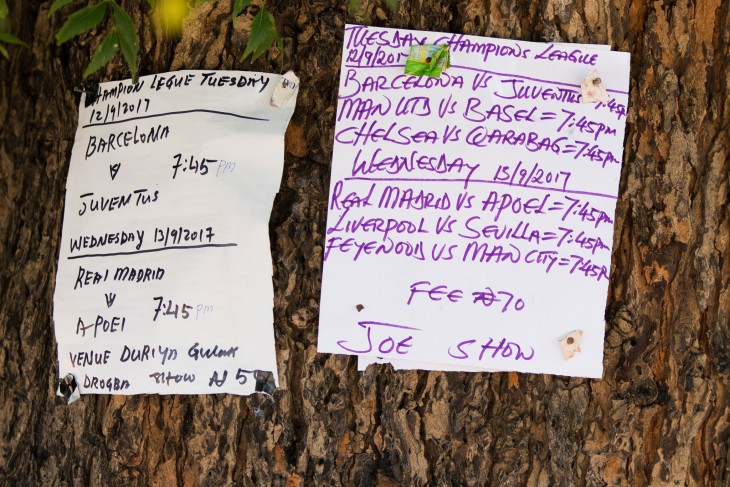 CHAMPION LEGUE TUESDAY
12/9/2017
BARCELONA
V
7:45 pm
JUVENTUS
WEDNESDAY 13/9/2017
REAL MADRID
V
7:45 pm
APOEL
VENUE DURIYA
DROGBA SHOW ₦ 5
TUESDAY CHAMPIONS LEAGUE
12/9/2017
BARCELONA VS JUVENTUS 7:45pm
MAN UTD VS BASEL=7:45pm
CHELSEA VS QARABAG=7:45pm
WEDNESDAY 13/9/2017
REAL MADRID VS APOEL=7:45pm
LIVERPOOL VS SEVILLA=7:45pm
FEYENOOD VS MAN CITY=7:45P
FEE ₦70
JOE SHOW